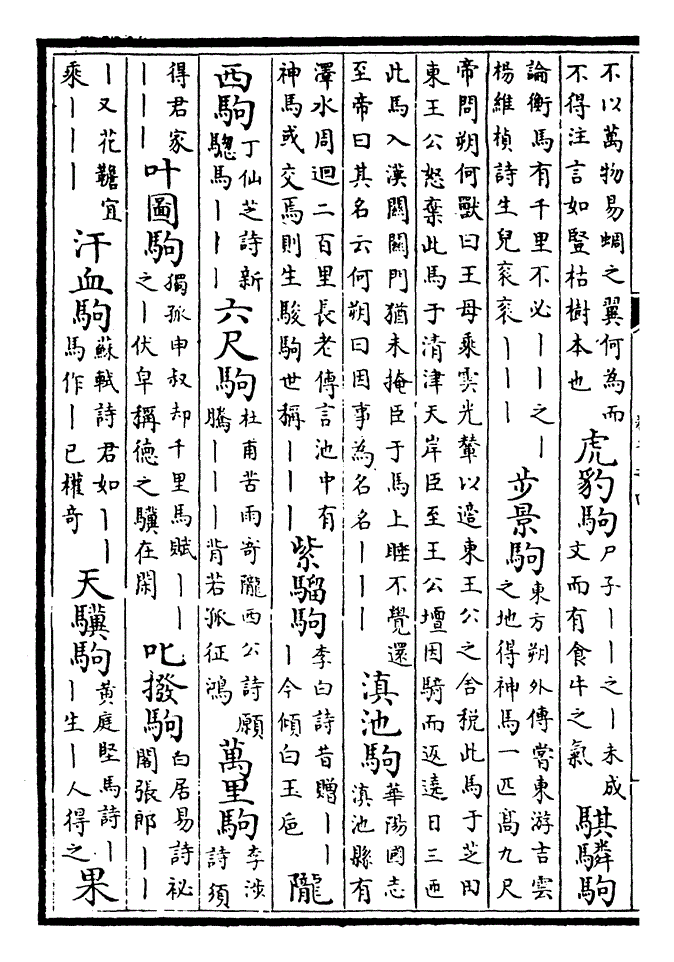 不以萬物易蜩之翼何為而
不得注言如豎枯樹本也
虎豹駒
尸子｜｜之｜未成
文而有食牛之氣
騏驎駒
論衡馬有千里不必｜｜之｜
楊維楨詩生兒衮衮｜｜｜
步景駒
東方朔外傳嘗東游吉雲
之地得神馬一匹髙九尺
帝問朔何獸曰王母乗雲光輦以造東王公之舍税此馬于芝田
東王公怒棄此馬于清津天岸臣至王公壇因騎而返遶日三匝
此馬入漢關關門猶未掩臣于馬上睡不覺還
至帝曰其名云何朔曰因事為名名｜｜｜
滇池駒
華陽國志
滇池縣有
澤水周迴二百里長老傳言池中有
神馬或交焉則生駿駒世稱｜｜｜
紫騮駒
李白詩昔贈｜｜
｜今傾白玉巵
隴
西駒
丁仙芝詩新
騘馬｜｜｜
六尺駒
杜甫苦雨寄隴西公詩願
騰｜｜｜背若孤征鴻
萬里駒
李渉
詩須
得君家
｜｜｜
叶圖駒
獨孤申叔却千里馬賦｜｜
之｜伏皁稱徳之驥在閑
叱撥駒
白居易詩祕
閣張郎｜｜
｜又花韂宜
乗｜｜｜
汗血駒
蘇軾詩君如｜｜
馬作｜已權竒
天驥駒
黃庭堅馬詩｜
｜生｜人得之
果